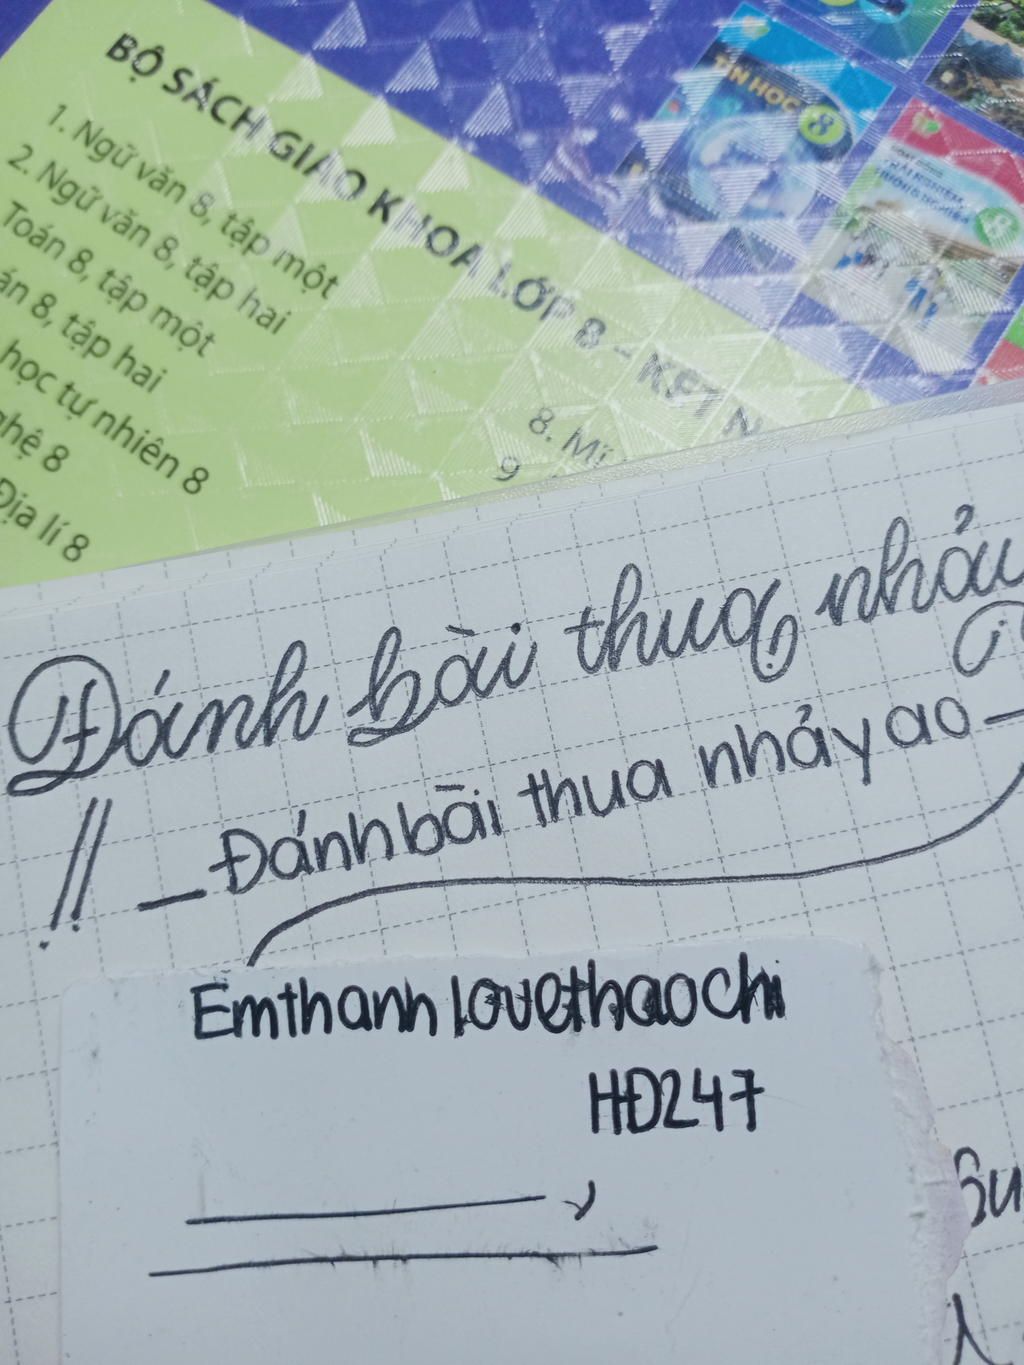 BỘ SÁCH GIÁO KHOA LỚP 8 – KẾT N
1. Ngữ văn 8, tập một
2. Ngữ văn 8, tập hai
Toán 8, tập một
án 8, tập hai
học tự nhiên 8
nghệ 8
Địa lí 8
8. Mĩ
9
TIN HỌC 8
HOẠT ĐỘNG
TRẢI NGHIỆM
HƯỚNG NGHIỆP
8
Đánh bài thua nhảy
!! – Đánh bài thua nhảy ao –
Emthanh lovethaochi
HĐ247